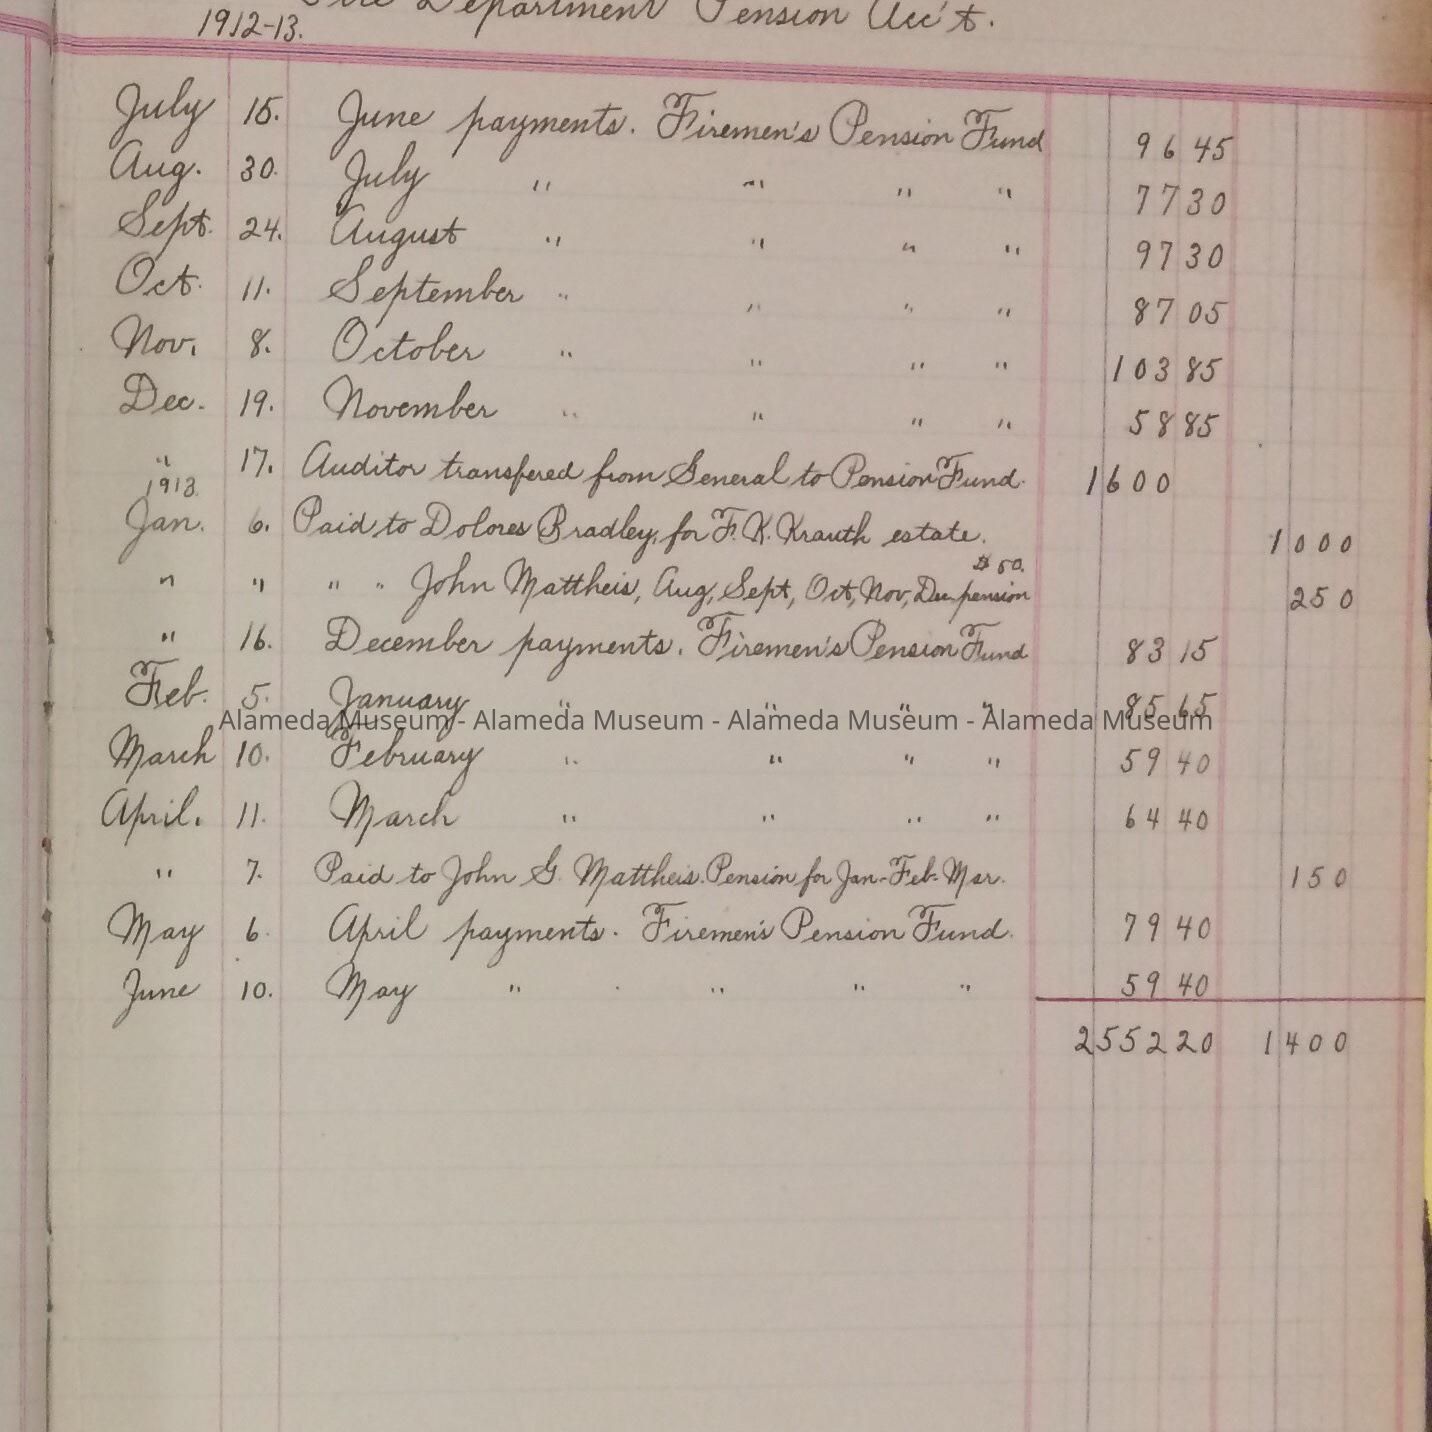 Fire Department Pension Acc't.
1912-13.
July 15. June payments. Firemen's Pension Fund 96 45
Aug. 30. July " " " " 77 30
Sept. 24. August " " " " 97 30
Oct. 11. September " " " " 87 05
Nov. 8. October " " " " 103 85
Dec. 19. November " " " " 58 85
" 17. Auditor transfered from General to Pension Fund. 1600
1913.
Jan. 6. Paid to Dolores Bradley, for F. K. Krauth estate. 1000
$50.
" " " " John Mattheis, Aug, Sept, Oct, Nov, Dec pension 250
" 16. December payments. Firemen's Pension Fund 83 15
Feb. 5. January " " " " 85 65
Alameda Museum - Alameda Museum - Alameda Museum - Alameda Museum
March 10. February " " " " 59 40
April. 11. March " " " " 64 40
" 7. Paid to John G. Mattheis. Pension for Jan-Feb-Mar. 150
May 6. April payments. Firemen's Pension Fund. 79 40
June 10. May " " " " 59 40
2552 20 1400